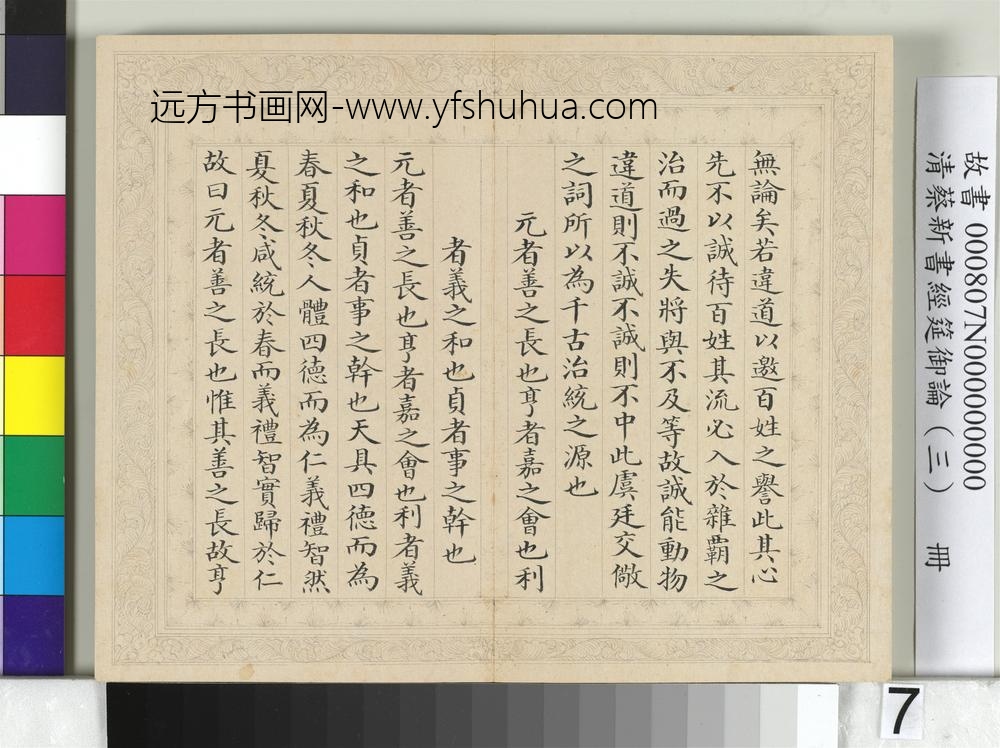 远方书画网-www.yfshuhua.com
無論矣若違道以邀百姓之譽此其心
先不以誠待百姓其流必入於雜霸之
治而過之失將與不及等故誠能動物
違道則不誠不誠則不中此虞廷交儆
之詞所以為千古治統之源也
元者善之長也亨者嘉之會也利
者義之和也貞者事之幹也
元者善之長也亨者嘉之會也利者義
之和也貞者事之幹也天具四徳而為
春夏秋冬人體四徳而為仁義禮智然
夏秋冬咸統於春而義禮智實歸於仁
故曰元者善之長也惟其善之長故亨
故書 000807N000000000
清蔡新書經筵御論（三） 冊
7